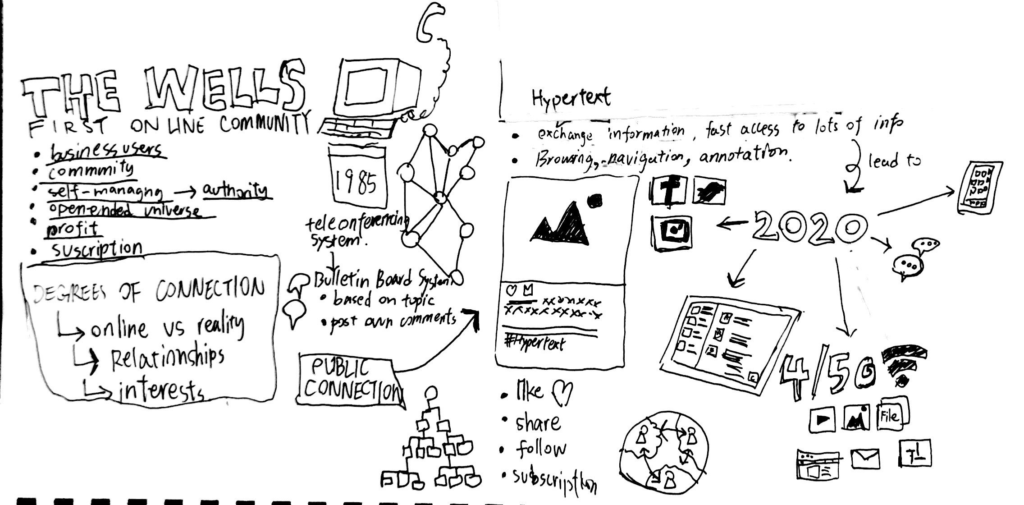 THE WELLS
FIRST ONLINE COMMUNITY
• business users
• commnity
• self-managing → authority
• open-ended universe
• profit
• suscription
DEGREES OF CONNECTION
online vs reality
Relationships
interests
1985
teleonferencing
system.
Bulletin Board System
• based on topic
• post own comments
PUBLIC
CONNECTION
Hypertext
• exchange information, fast access to lots of info
• Browsing, navigation, annotation.
lead to
2020
xxxxxxxx
xxxxxxxxxxxxx
#Hypertext
• like
• share
• follow
• subscription
4/5G
File